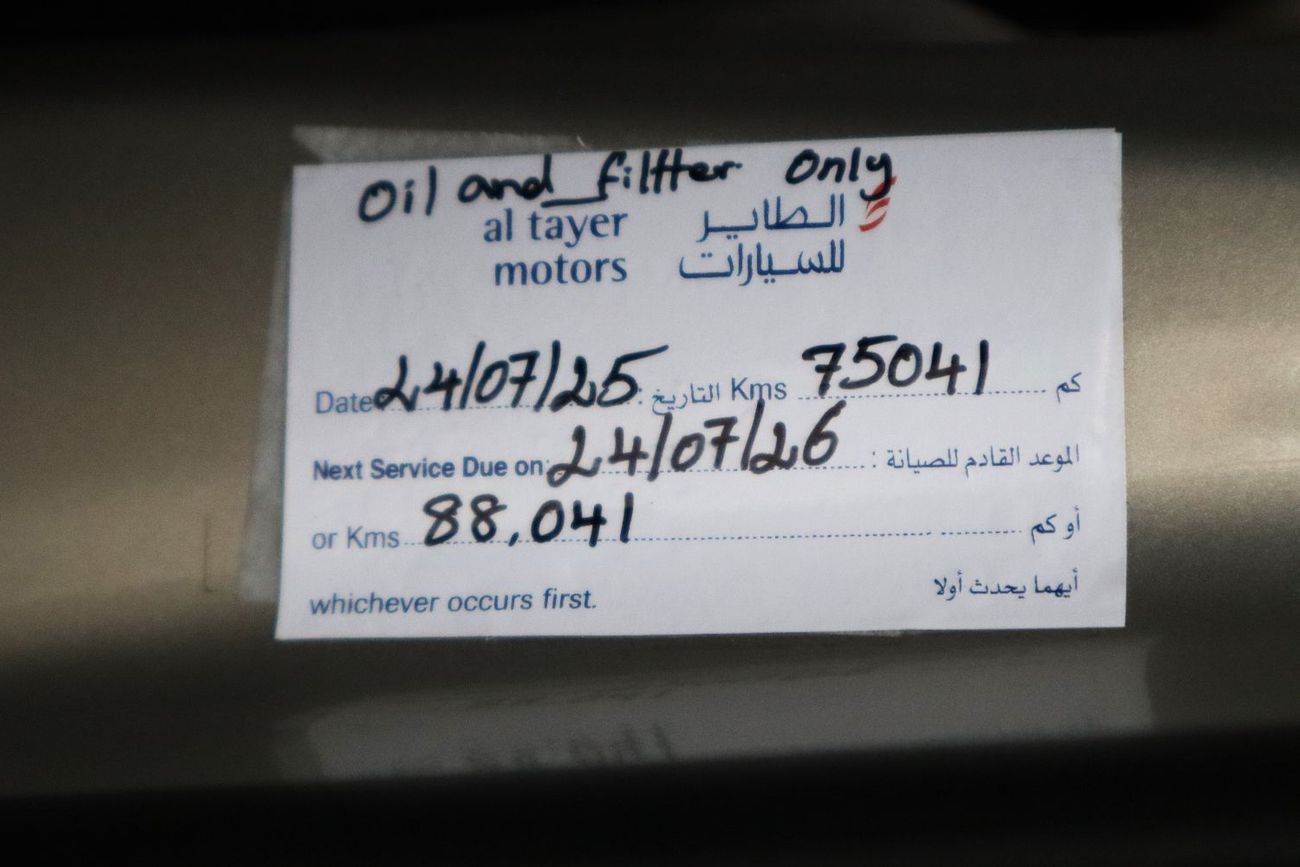 Oil and filtter only
al tayer الطاير
motors للسيارات
Date 24/07/25 : التاريخ Kms 75041 كم
Next Service Due on: 24/07/26 : الموعد القادم للصيانة
or Kms 88,041 أو كم
whichever occurs first. أيهما يحدث أولا